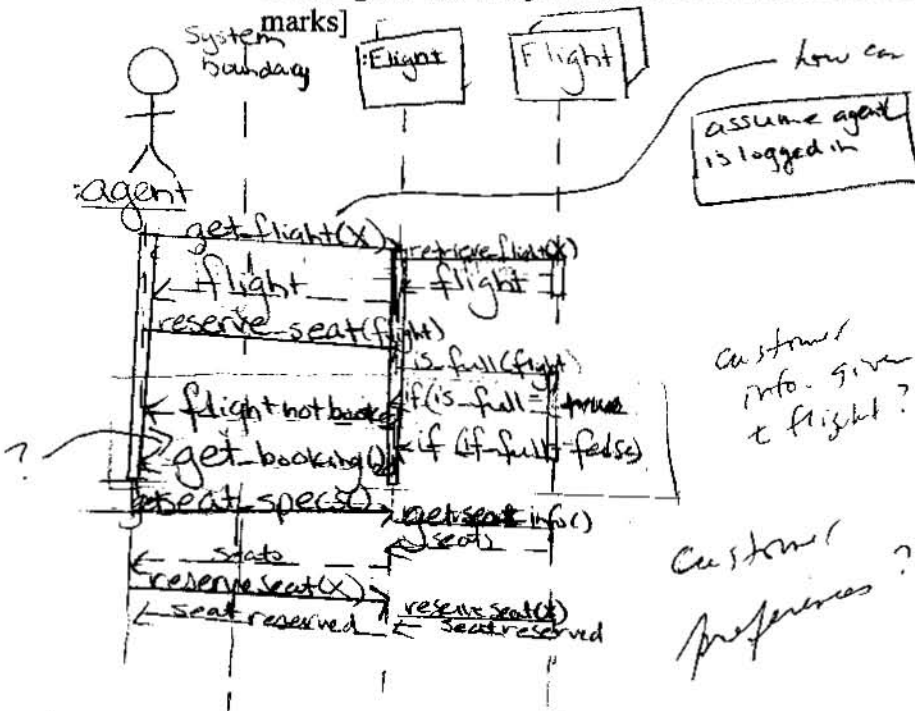 marks]
System boundary
:Flight
Flight
how can
assume agent
is logged in
:agent
get_flight(X)
retrieve_flight(X)
flight
flight
reserve_seat(flight)
is_full(flight)
if(is_full = true
flight not booked
if (if-full = false)
?
get_booking()
customer
info. given
t flight?
get seat_specs()
get seat_info()
seats
seats
reserve seat(X)
reserve seat(X)
seat reserved
seat reserved
customer
preferences?